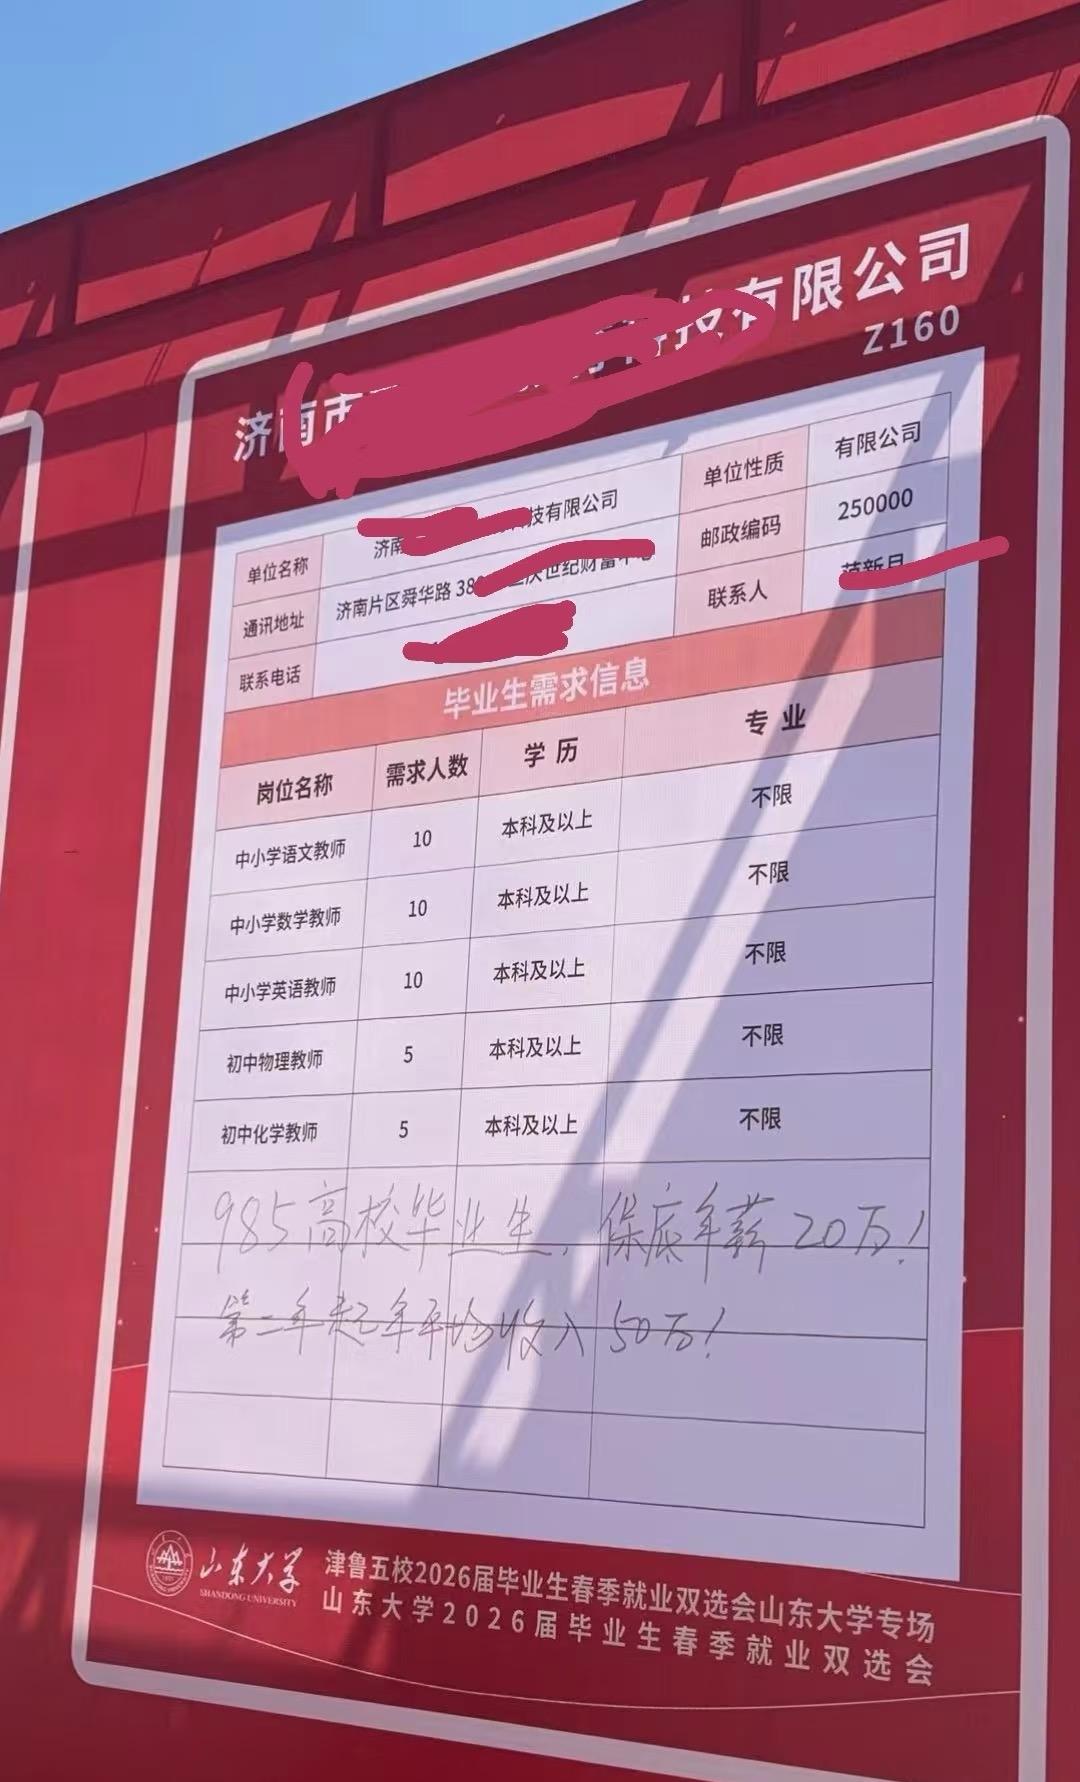 济南市 科技有限公司
Z160
单位名称 济南 技有限公司 单位性质 有限公司
通讯地址 济南片区舜华路 38 世纪财富中心 邮政编码 250000
联系电话 联系人
毕业生需求信息
岗位名称 需求人数 学 历 专 业
中小学语文教师 10 本科及以上 不限
中小学数学教师 10 本科及以上 不限
中小学英语教师 10 本科及以上 不限
初中物理教师 5 本科及以上 不限
初中化学教师 5 本科及以上 不限
985高校毕业生，保底年薪20万！
第二年起年平均收入50万！
山东大学
SHANDONG UNIVERSITY
津鲁五校2026届毕业生春季就业双选会山东大学专场
山东大学2026届毕业生春季就业双选会